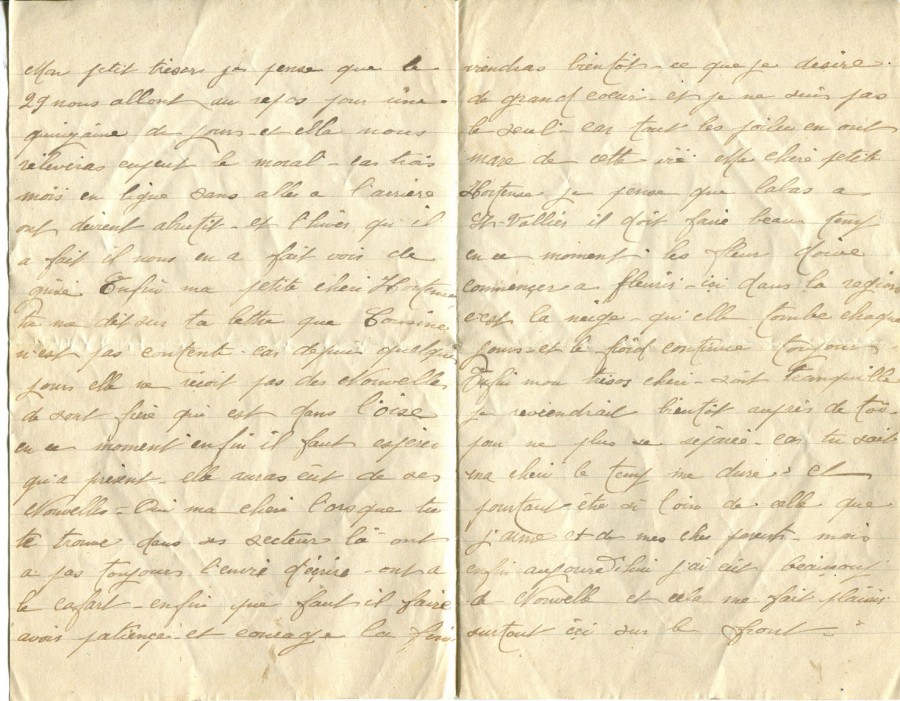 Mon petit tresor je pense que le
29 nous allont au repos pour une
quinzaine de jours et elle nous
releveras un peut le moral - car trois
mois en ligne sans aller a l'arrière
ont devient abrutit - et l'hiver qu'il
a fait il nous en a fait voir de
Enfin ma petite cheri Hortense
tu me dit sur ta lettre que Cousine
n'est pas contente car depuis quelque
jours elle ne reçoit pas des Nouvelles
de sont frère qui est dans l'oise
en ce moment enfin il faut esperer
qu'a présent - elle auras eut de ses
Nouvelles - Oui ma cheri lorsque tu
te trouve dans ses secteur là ont
a pas toujours l'envie d'écrire - ont a
le cafart - enfin que faut il faire
avoir patiençe - et courage la fin
viendras bientôt - ce que je desire
de grand coeur - et je ne suis pas
le seul - car tout les poilu en ont
mare de cette vie Ma chere petite
Hortense je pense que labas a
St-Vallier il doit faire beau temp
en ce moment les fleur doive
commençer a fleurir - ici dans la region
c'est la neige - qu'elle tombe chaque
jours - et le froid continue toujours
Enfin mon tresor cheri - soit tranquille
je reviendrait bientôt auprès de toi
pour ne plus se séparer - car tu sait
ma cheri le temp me dure - et
pourtant être si loin de celle que
j'aime et de mes cher parents - mais
enfin aujourd'hui j'ai eut
de Nouvelle et cela me fait plaisir
surtout ici sur le front -